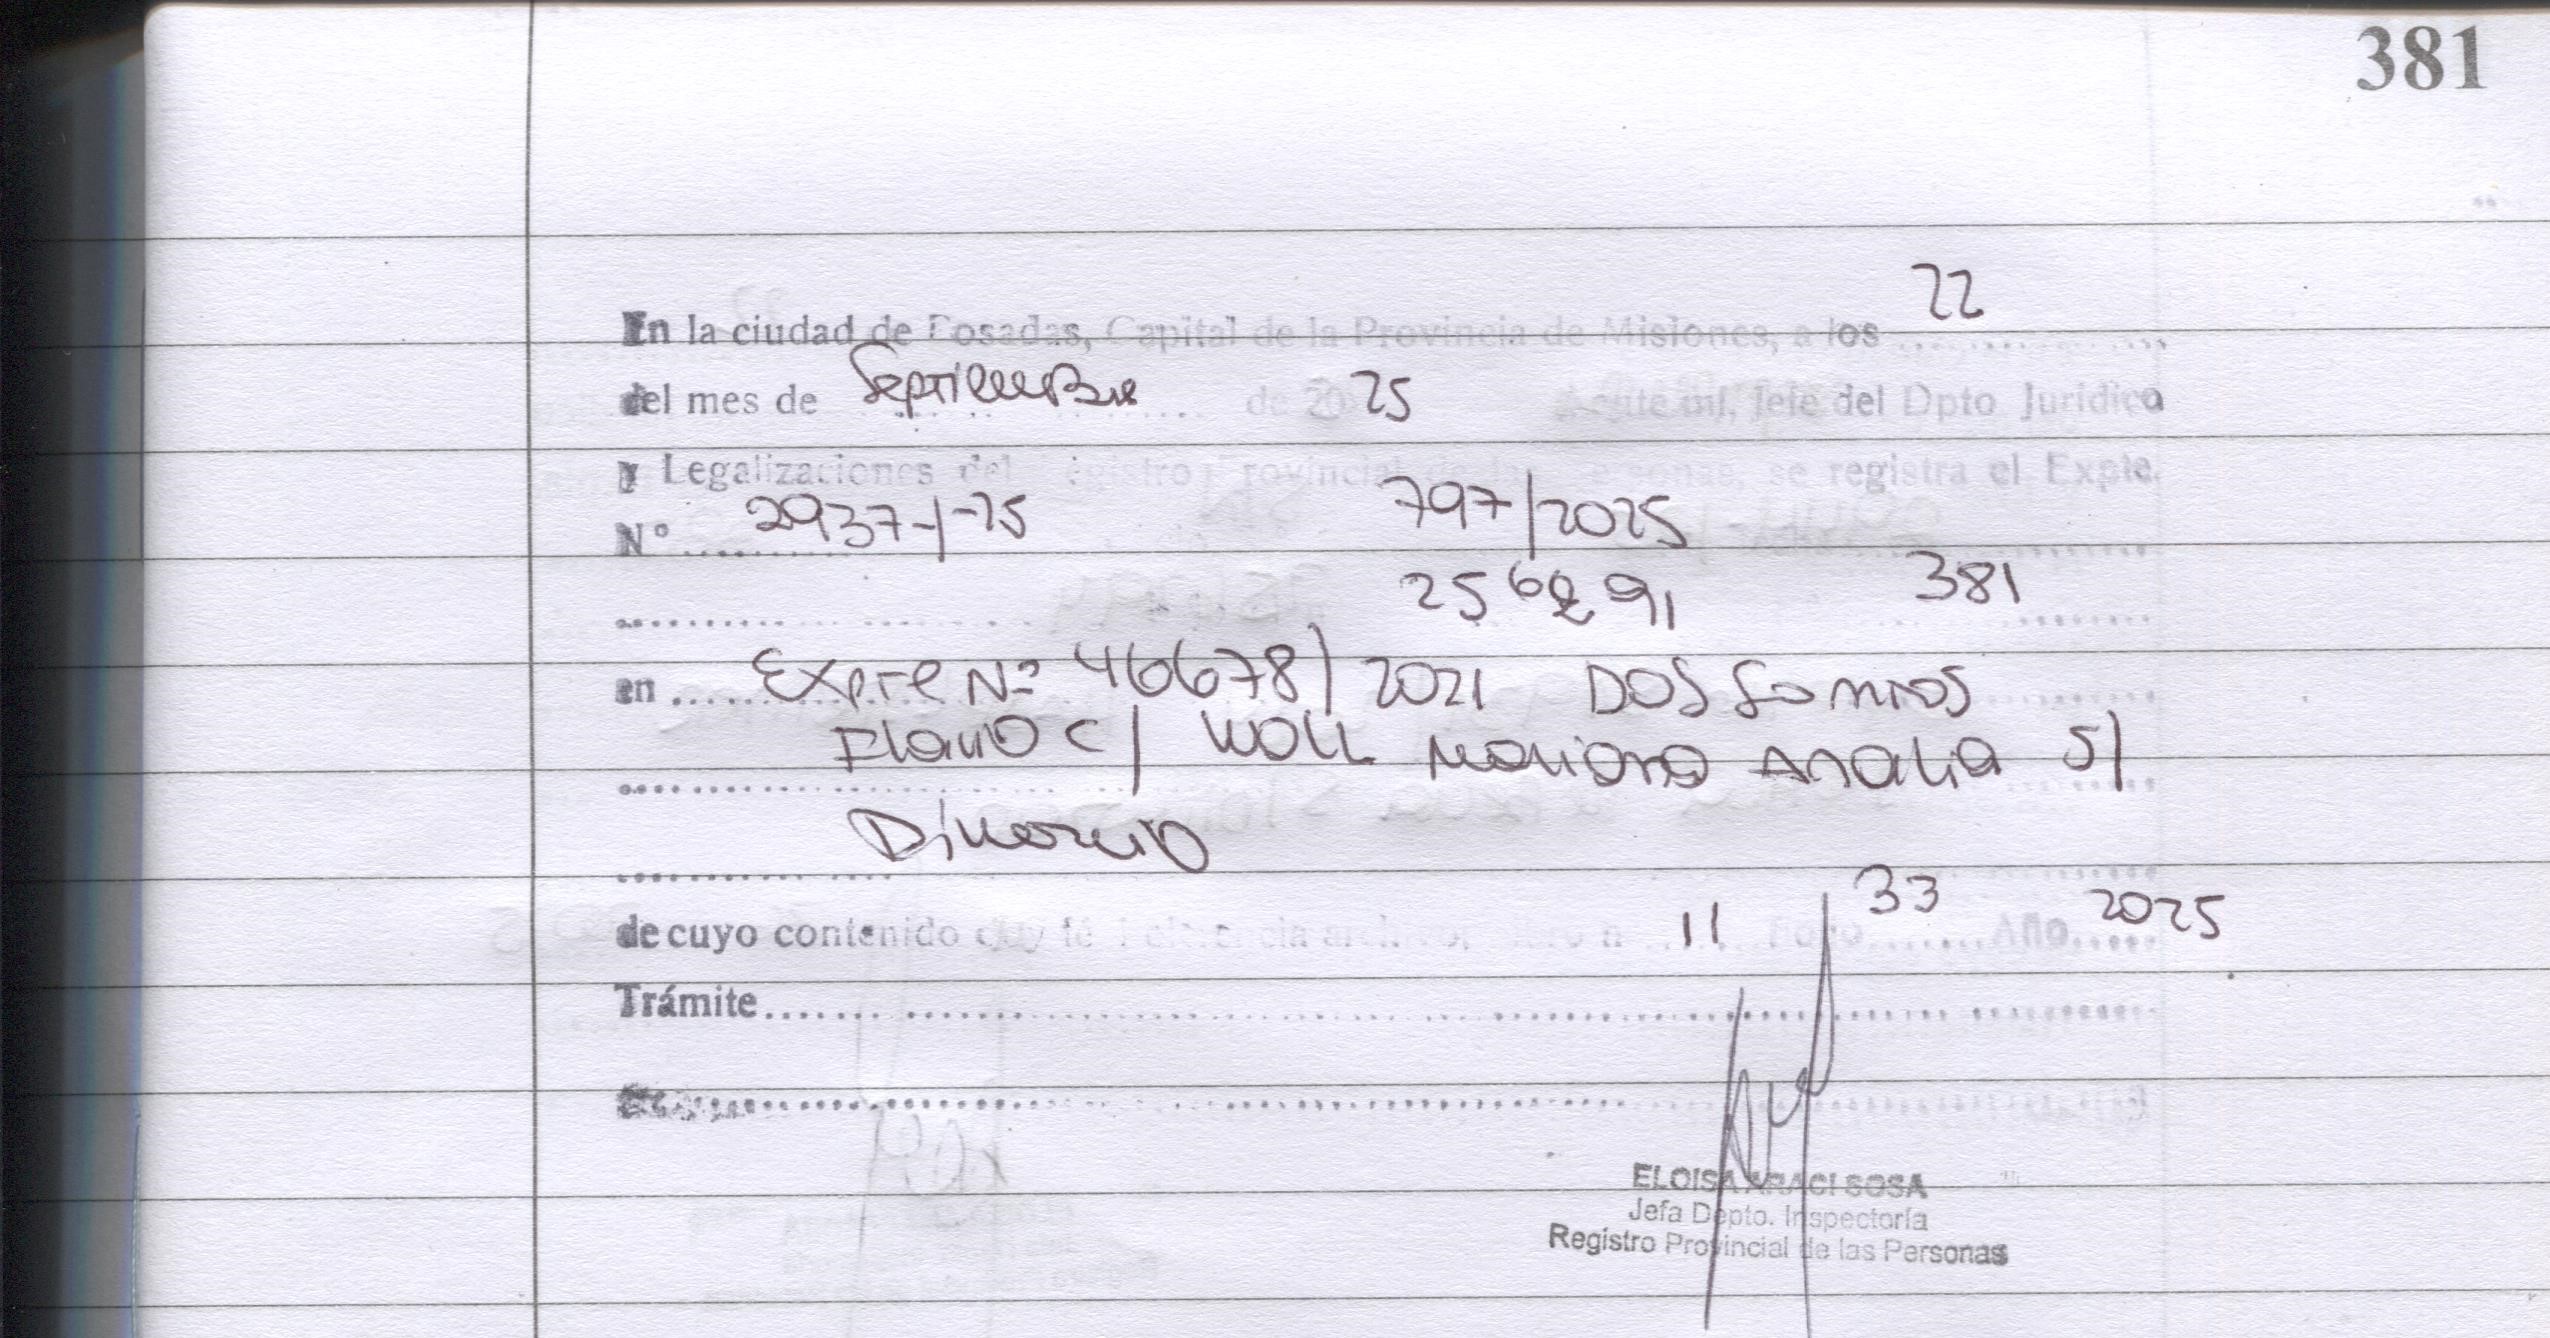 381
22
En la ciudad de Posadas, Capital de la Provincia de Misiones, a los
del mes de Septiembre de 20 25 Jefe del Dpto Juridico
y Legalizaciones del Registro Provincial se registra el Expte.
N° 2937-/-25 797/2025
256291 381
en Expte Nº 46678/2021 DOS Santos
Flavio c/ WOLL Mariana Analia s/
Divorcio
de cuyo contenido doy fé 11 Folio 33 Año 2025
Trámite
ELOISA ARACI SOSA
Jefa Depto. Inspectoría
Registro Provincial de las Personas